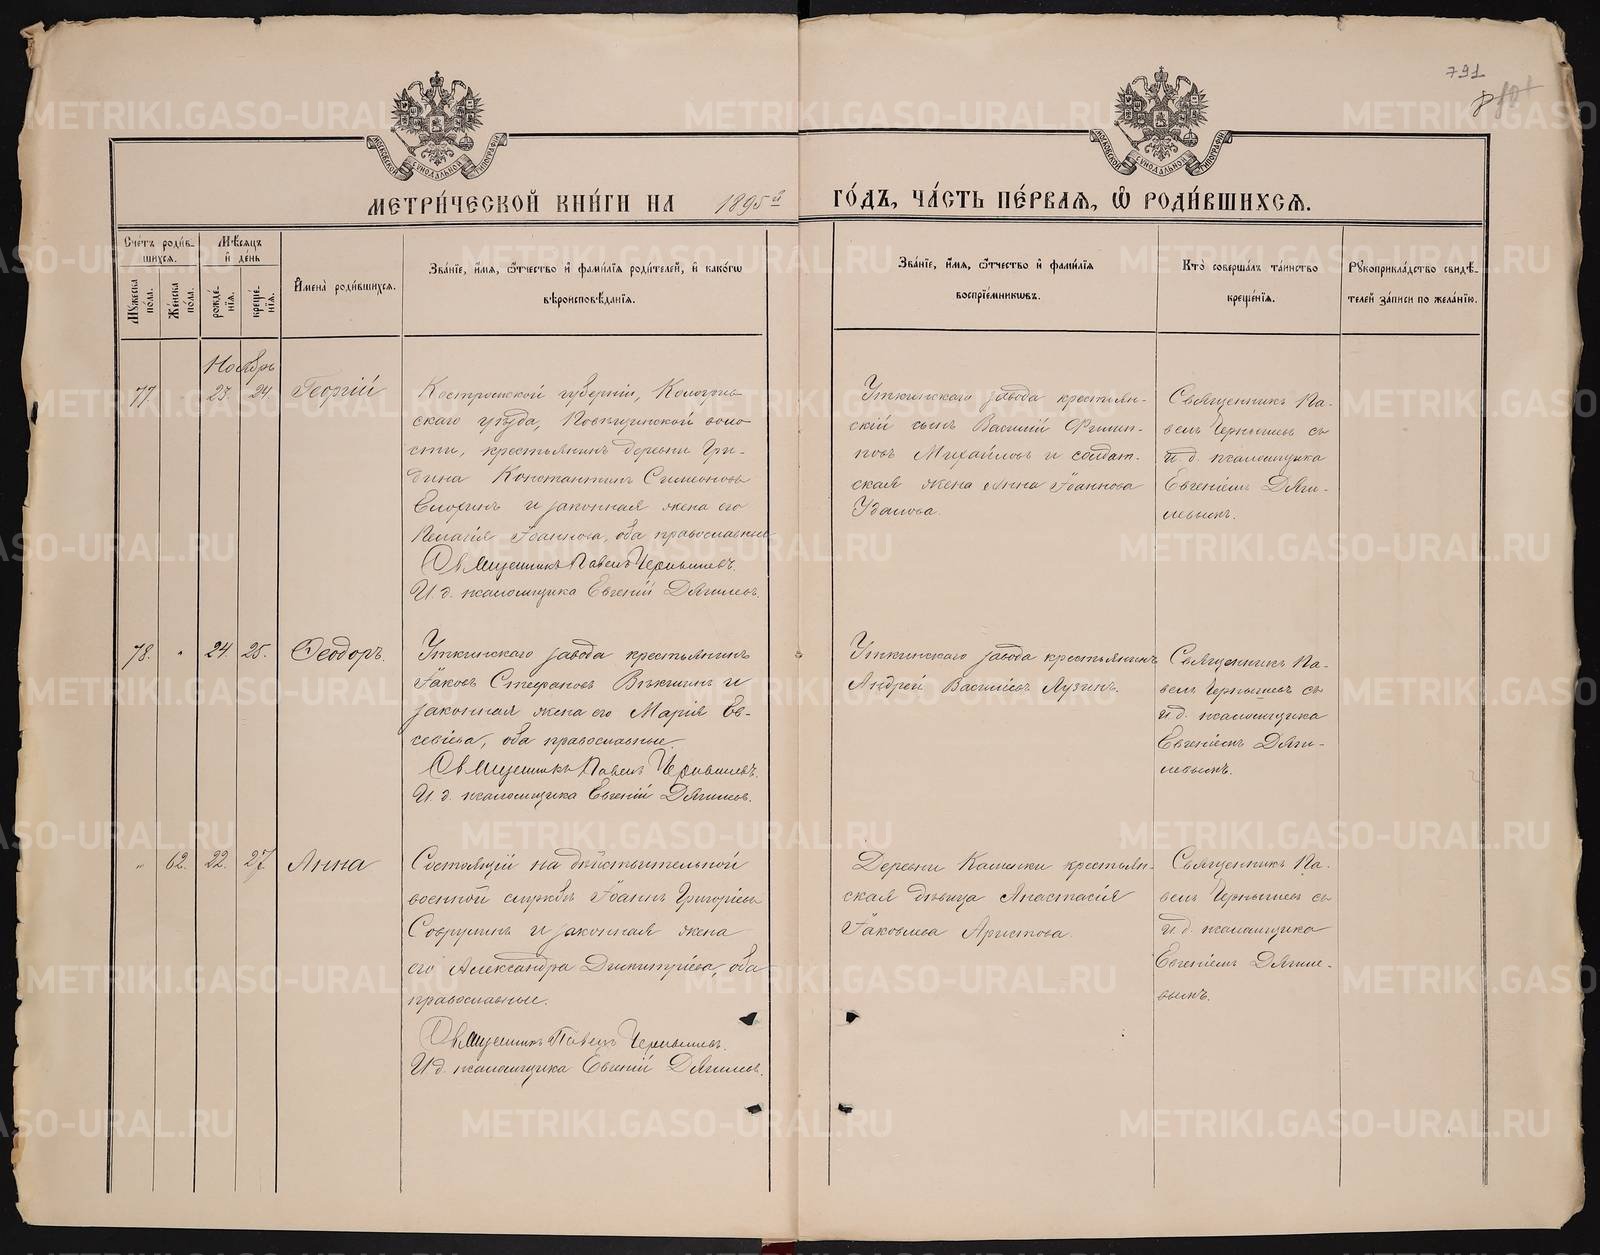 791
МЕТРИ́ЧЕСКОЙ КНИ́ГИ НА 1895й ГО́ДЪ, ЧА́СТЬ ПЕ́РВАЯ, Ѡ҆ РОДИ́ВШИХСЯ.
МОСКОВСКОЙ СѴНОДАЛЬНОЙ ТИПОГРАФІИ
МОСКОВСКОЙ СѴНОДАЛЬНОЙ ТИПОГРАФІИ
Сче́тъ роди́в-
шихся.
Мѣ́сяцъ
и҆ де́нь
Му́жеска по́ла.
Же́нска по́ла.
рожде́-
нїя.
креще́-
нїя.
И҆мена̀ роди́вшихся.
Зва́нїе, и҆́мя, ѻ҆́тчество и҆ фами́лїя роди́телей, и҆ како́гѡ
вѣроисповѣ́данїя.
Зва́нїе, и҆́мя, ѻ҆́тчество и҆ фами́лїя
воспрїе́мникѡвъ.
Кто̀ соверша́лъ та́инство
креще́нїя.
Рꙋкоприкла́дство свидѣ́-
телей за́писи по жела́нїю.
Ноябрь
77. 23. 24. Георгій
Костромской губерніи, Кологрив-
скаго уѣзда, воло-
сти, крестьянинъ деревни Гри-
дина Константинъ Симеоновъ
и законная жена его
Пелагія Іоаннова, оба православные
Священникъ Павелъ Чернышевъ.
И. д. псаломщика Евгеній Дягилевъ.
Уткинскаго завода крестьян-
скій сынъ Василій Филип-
повъ Михайловъ и солдат-
ская жена Анна Іоаннова
Священникъ Па-
велъ Чернышевъ съ
и. д. псаломщика
Евгеніемъ Дяги-
левымъ.
78. " 24. 25. Ѳеодоръ.
Уткинскаго завода крестьянинъ
Іаковъ Стефановъ Вѣкшинъ и
законная жена его Марія Ев-
севіева, оба православные.
Священникъ Павелъ Чернышевъ.
И. д. псаломщика Евгеній Дягилевъ.
Уткинскаго завода крестьянинъ
Андрей Василіевъ Лузинъ.
Священникъ Па-
велъ Чернышевъ съ
и. д. псаломщика
Евгеніемъ Дяги-
левымъ.
" 62. 22. 27. Анна
Состоящій на дѣйствительной
военной службѣ Іоаннъ Григоріевъ
и законная жена
его Александра Димитріева, оба
православные.
Священникъ Павелъ Чернышевъ.
И. д. псаломщика Евгеній Дягилевъ.
Деревни Каменки крестьян-
ская дѣвица Анастасія
Іаковлева Аристова.
Священникъ Па-
велъ Чернышевъ съ
и. д. псаломщика
Евгеніемъ Дягиле-
вымъ.
METRIKI.GASO-URAL.RU